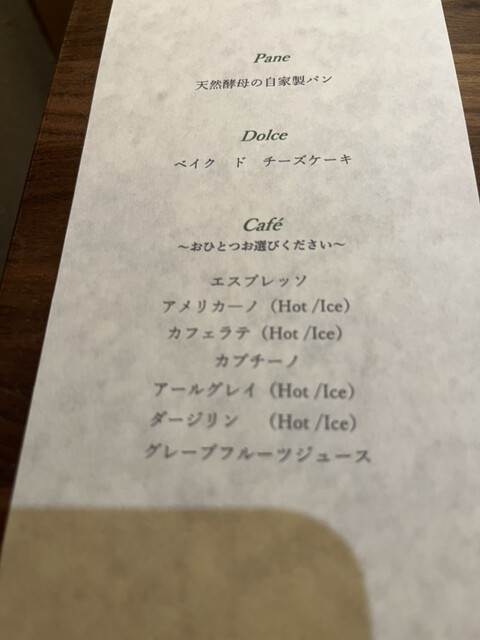 Pane
天然酵母の自家製パン
Dolce
ベイク ド チーズケーキ
Café
～おひとつお選びください～
エスプレッソ
アメリカーノ（Hot /Ice）
カフェラテ（Hot /Ice）
カプチーノ
アールグレイ（Hot /Ice）
ダージリン （Hot /Ice）
グレープフルーツジュース